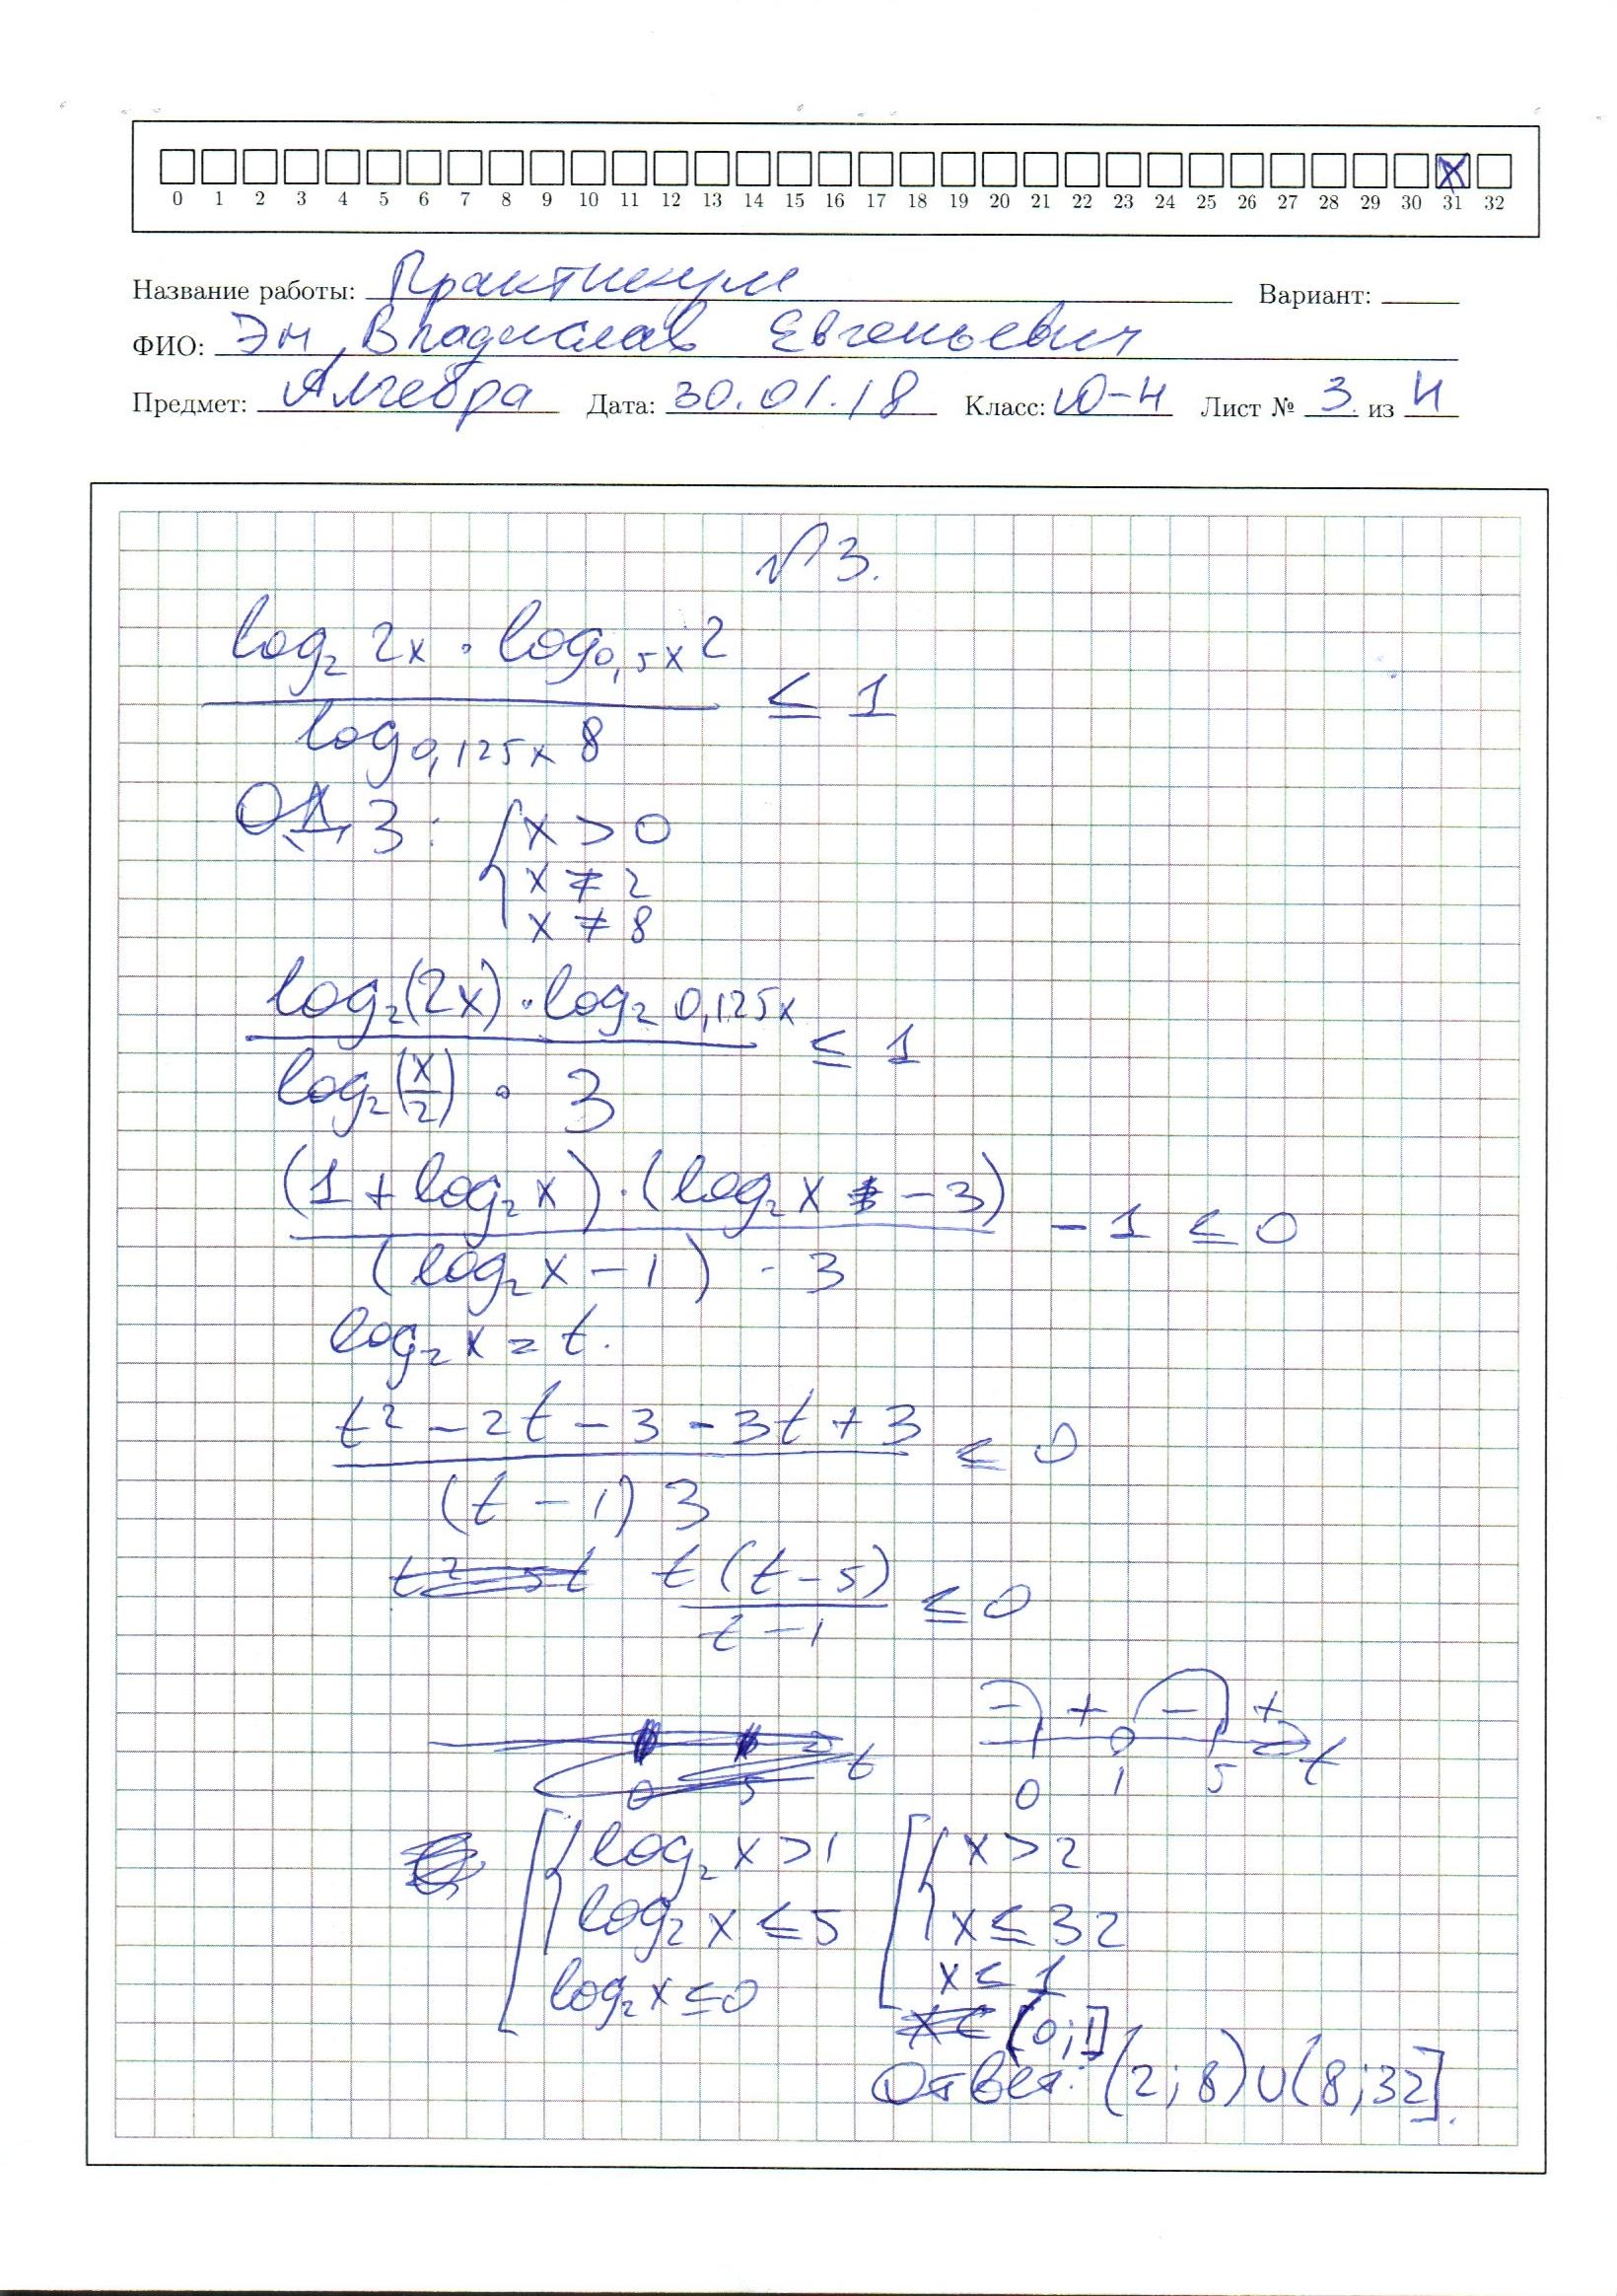 0 1 2 3 4 5 6 7 8 9 10 11 12 13 14 15 16 17 18 19 20 21 22 23 24 25 26 27 28 29 30 31 32
Название работы: Практикум Вариант:
ФИО: Эм Владислав Евгеньевич
Предмет: Алгебра Дата: 30.01.18 Класс: 10-4 Лист № 3 из 4
№3.
log₂ 2x · log₀,₅ₓ 2
≤ 1
log₀,₁₂₅ₓ 8
ОДЗ: { x > 0
x ≠ 2
x ≠ 8
log₂(2x) · log₂ 0,125x
≤ 1
log₂(x/2) · 3
(1 + log₂ x) · (log₂ x - 3)
- 1 ≤ 0
(log₂ x - 1) · 3
log₂ x = t.
t² - 2t - 3 - 3t + 3
≤ 0
(t - 1) 3
t (t - 5)
≤ 0
t - 1
- + - +
0 1 5 t
0 5 t
[ { log₂ x > 1 [ { x > 2
log₂ x ≤ 5 x ≤ 32
log₂ x ≤ 0 x ≤ 1
(0; 1]
Ответ: (2; 8) ∪ (8; 32].